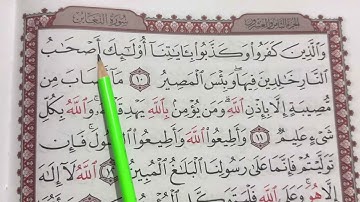 الجزء الثامن والعشرون سورة التغابن
والذين كفروا وكذبوا بـٔايتنا أولئك أصحب
النار خلدين فيها وبئس المصير ١٠ ما أصاب من
مصيبة إلا بإذن الله ومن يؤمن بالله يهد قلبه والله بكل
شيء عليم ١١ وأطيعوا الله وأطيعوا الرسول فإن
توليتم فإنما على رسولنا البلغ المبين ١٢ الله لا إله
إلا هو وعلى الله فليتوكل